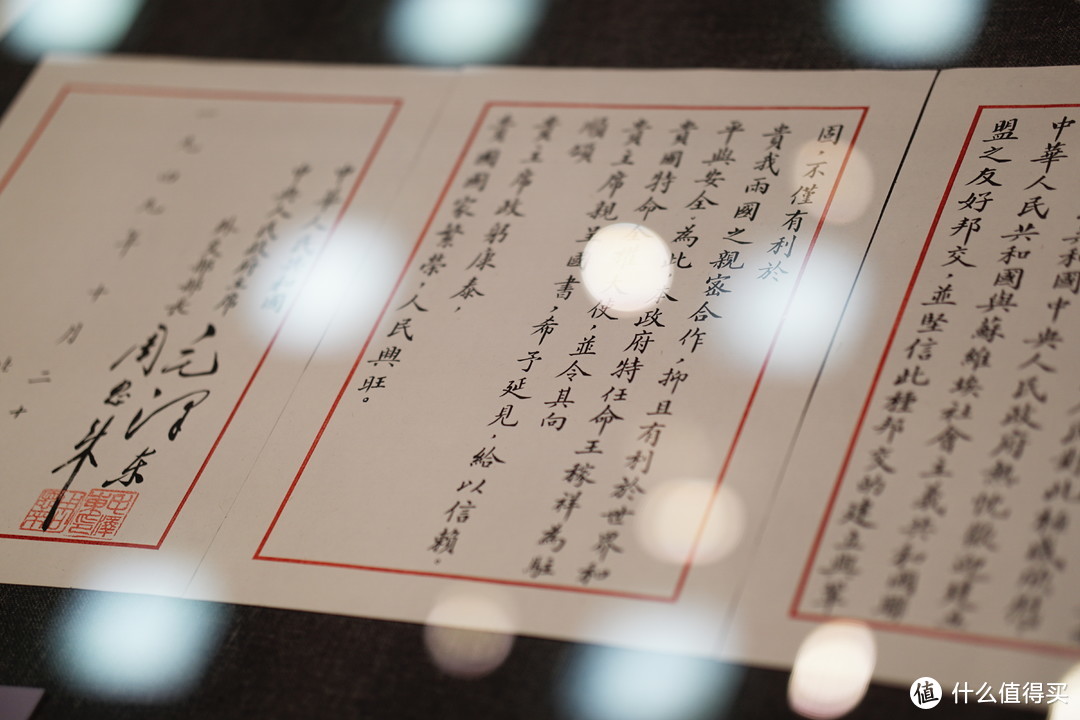 共和國中央人民政府熱忱歡迎建立
中華人民共和國與蘇維埃社會主義共和國聯
盟之友好邦交,並堅信此種邦交的建立與鞏
固,不僅有利於
貴我兩國之親密合作,抑且有利於世界和
平與安全。為此,本政府特任命王稼祥為駐
貴國特命使,並令其向
貴主席親呈國書,希予延見,給以信賴。
順頌
貴主席政躬康泰,
貴國國家繁榮,人民興旺。
中華人民共和國
中央人民政府主席 毛澤东
外交部部長 周恩来
一九四九年十月二十
值 什么值得买